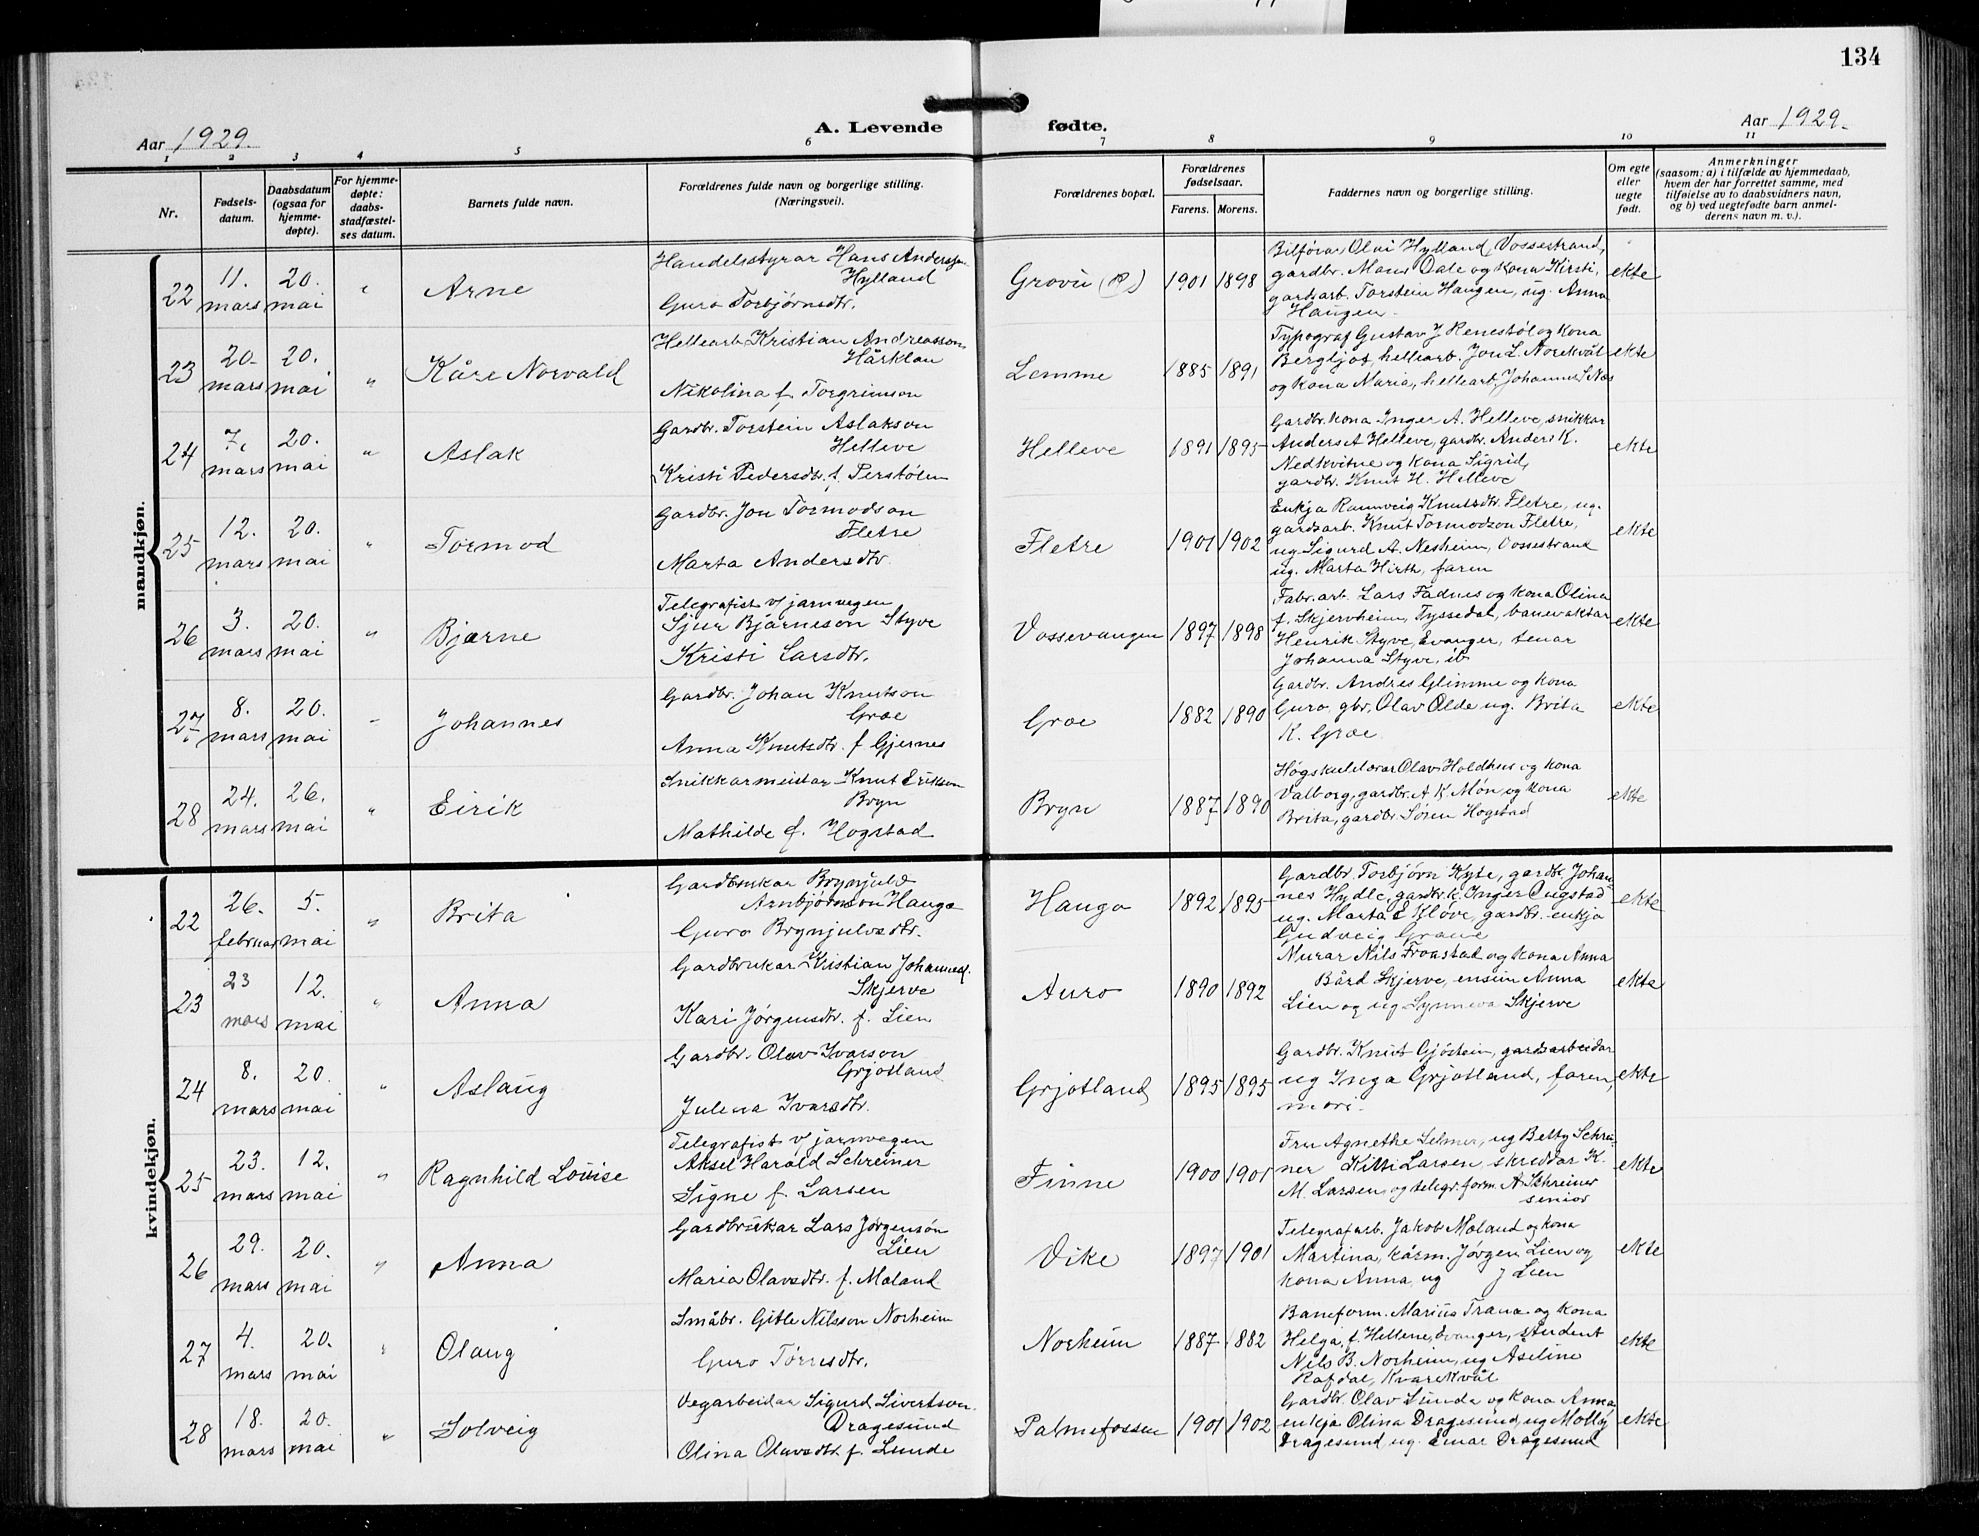 134
Aar 1929.
A. Levende fødte.
Aar 1929.
1 2 3 4 5 6 7 8 9 10 11
Nr.
Fødsels-
datum.
Daabsdatum
(ogsaa for
hjemme-
døpte).
For hjemme-
døpte:
daabs-
stadfæstel-
ses datum.
Barnets fulde navn.
Forældrenes fulde navn og borgerlige stilling.
(Næringsvei).
Forældrenes bopæl.
Forældrenes
fødselsaar.
Farens. Morens.
Faddernes navn og borgerlige stilling.
Om egte
eller
uegte
født.
Anmerkninger
(saasom: a) i tilfælde av hjemmedaab,
hvem der har forrettet samme, med
tilføielse av to daabsvidners navn,
og b) ved uegtefødte barn anmel-
derens navn m. v.).
mandkjøn.
22 11. mars 20. mai " Arne
Handelsstyrar Hans Anderss.
Hylland
Guro Torbjørnsdtr.
Grovu (R) 1901 1898
Bilførar Olai Hylland, Vossestrand,
gardbr. Mons Dale og kona Kirsti,
gardsarb. Torstein Haugen, ug. Anna
Haugen.
ekte
23 20. mars 20. mai " Kåre Norvald
Hellearb. Kristian Andreasson
Hårklau
Nikolina f. Torgrimson
Lemme 1885 1891
Typograf Gustav J Renestøl og kona
Bergljot, hellearb. Jon L. Norekvål
og kona Maria, hellearb. Johannes S Næs
ekte
24 7. mars 20. mai " Aslak
Gardbr. Torstein Aslakson
Helleve
Kristi Pedersdtr. f. Perstølen
Helleve 1891 1895
Gardbr. kona Inger A. Helleve, snikkar
Anders A Helleve, gardbr. Anders K.
Nedkvitne og kona Sigrid,
gardbr. Knut H. Helleve
ekte
25 12. mars 20. mai " Tormod
Gardbr. Jon Tormodson
Fletre
Marta Andersdtr.
Fletre 1901 1902
Enkja Rannveig Knutsdtr. Fletre, ug.
gardsarb. Knut Tormodson Fletre,
ug. Sigurd A. Nesheim, Vossestrand
ug. Marta Hirth, faren
ekte
26 3. mars 20. mai " Bjarne
Telegrafist v/ jarnvegen
Sjur Bjarneson Styve
Kristi Larsdtr.
Vossevangen 1897 1898
Fabr. arb. Lars Fadnes og kona Olina
f. Skjervheim, Tyssedal, banevaktar
Henrik Styve, Evanger, tenar
Johanna Styve, ib.
ekte
27 8. mars 20. mai " Johannes
Gardbr. Johan Knutson
Groe
Anna Knutsdtr. f Gjernes
Groe 1882 1890
Gardbr. Andres Glimme og kona
Guro, gbr. Olav Olde ug. Brita
K. Groe.
ekte
28 24. mars 26. mai " Eirik
Snikkarmeistar Knut Erikson
Bryn
Mathilde f. Hogstad
Bryn 1887 1890
Høgskulelærar Olav Holdhus og kona
Valborg, gardbr. A K. Møn, og kona
Brita, gardbr. Søren Hogstad
ekte
kvindekjøn.
22 26. februar 5. mai " Brita
Gardbrukar Brynjulv
Arnbjørnson Hauge
Guro Brynjulvsdtr.
Haugo 1892 1895
Gardbr. Torbjørn Kyte, gardbr. Johan-
nes Hydle, gardbr. k. Inger Augstad
ug. Marta E Kløve, gardbr. enkja
Gudveig Graue
ekte
23 23 mars 12. mai " Anna
Gardbrukar Kristian Johannes.
Skjerve
Kari Jørgensdtr. f. Lien
Auro 1890 1892
Murar Nils Froastad og kona Anna
Bård Skjerve, ensim Anna
Lien og ug Synneva Skjerve
ekte
24 8. mars 20. mai " Aslaug
Gardbr. Olav Ivarson
Grjotland
Julena Ivarsdtr.
Grjotland 1895 1895
Gardbr. Knut Gjøstein, gardsarbeidar
ug Inga Grjotland, faren,
mori.
ekte
25 23. mars 12. mai " Ragnhild Louise
Telegrafist v/ jarnvegen
Aksel Harald Schreiner
Signe f. Larsen
Finne 1900 1901
Fru Agnethe Selmer, ug Betty Schrei-
ner Kitti Larsen, skreddar K.
M. Larsen og telegr. form. A Schreiner
senior
ekte
26 29. mars 20. mai " Anna
Gardbrukar Lars Jørgensøn
Lien
Maria Olavsdtr. f. Moland
Vike 1897 1901
Telegrafarb. Jakob Moland og kona
Martina, kårm. Jørgen Lien og
kona Anna, ug J Lien
ekte
27 4. mars 20. mai " Olaug
Småbr. Gitle Nilsson Norheim
Guro Torresdtr.
Norheim 1887 1882
Baneform. Marius Trana og kona
Helga, f. Hellene, Evanger, student
Nils B. Norheim, ug Aseline
Rafdal, Kvarekvål
ekte
28 18. mars 20. mai " Solveig
Vegarbeidar Sigurd Sivertson
Dragesund
Olina Olavsdtr. f. Lunde
Palmefossen 1901 1902
Gardbr. Olav Lunde og kona Anna,
enkja Olina Dragesund, ug Molly
Dragesund, ug. Einar Dragesund
ekte